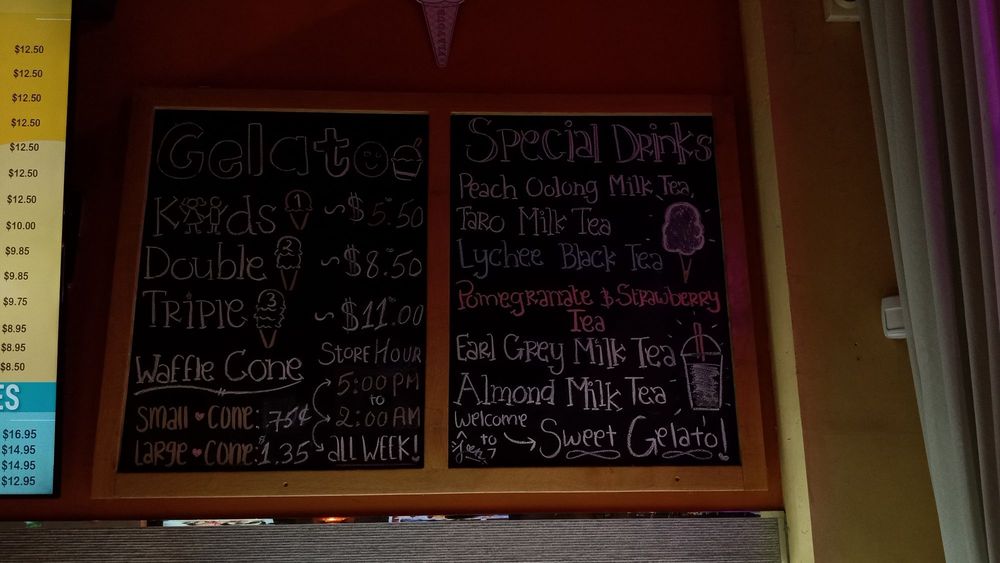 $12.50
$12.50
$12.50
$12.50
$12.50
$12.50
$12.50
$10.00
$9.85
$9.85
$9.75
$8.95
$8.95
$8.50
ES
$16.95
$14.95
$14.95
$12.95
Gelato
Kids 1 ~$5.50
Double 2 ~$8.50
Triple 3 ~$11.00
Waffle Cone
Small Cone: .75¢
Large Cone: $1.35
Store Hour
5:00 PM
to
2:00 AM
ALL WEEK!
Special Drinks
Peach Oolong Milk Tea,
Taro Milk Tea
Lychee Black Tea
Pomegranate & Strawberry
Tea
Earl Grey Milk Tea
Almond Milk Tea
Welcome
to
Sweet Gelato!